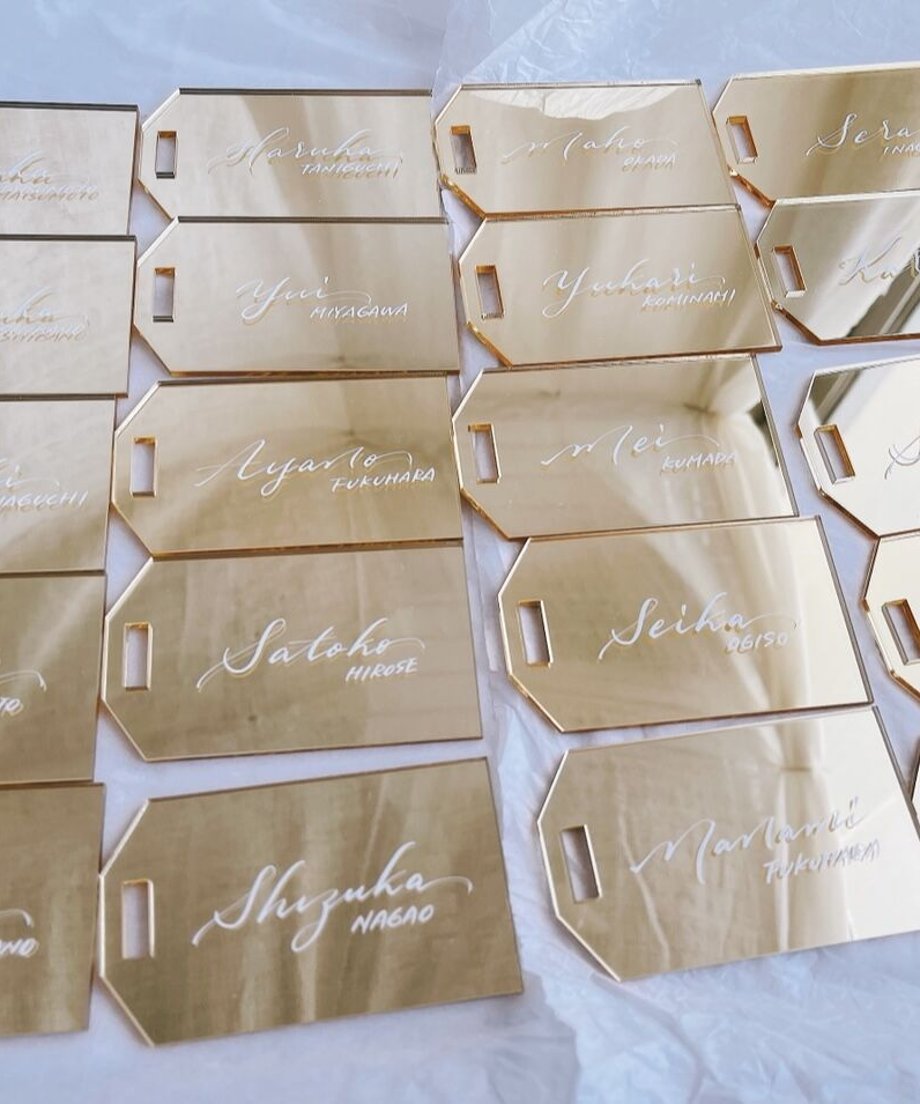 MATSUMOTO
Haruka
TANIGUCHI
Maho
OKADA
Sera
Yui
MIYAGAWA
Yukari
KOMINAMI
Ku
Ayano
FUKUHARA
Mei
KUMADA
Satoko
HIROSE
Seika
OGISO
Shizuka
NAGAO
Manami